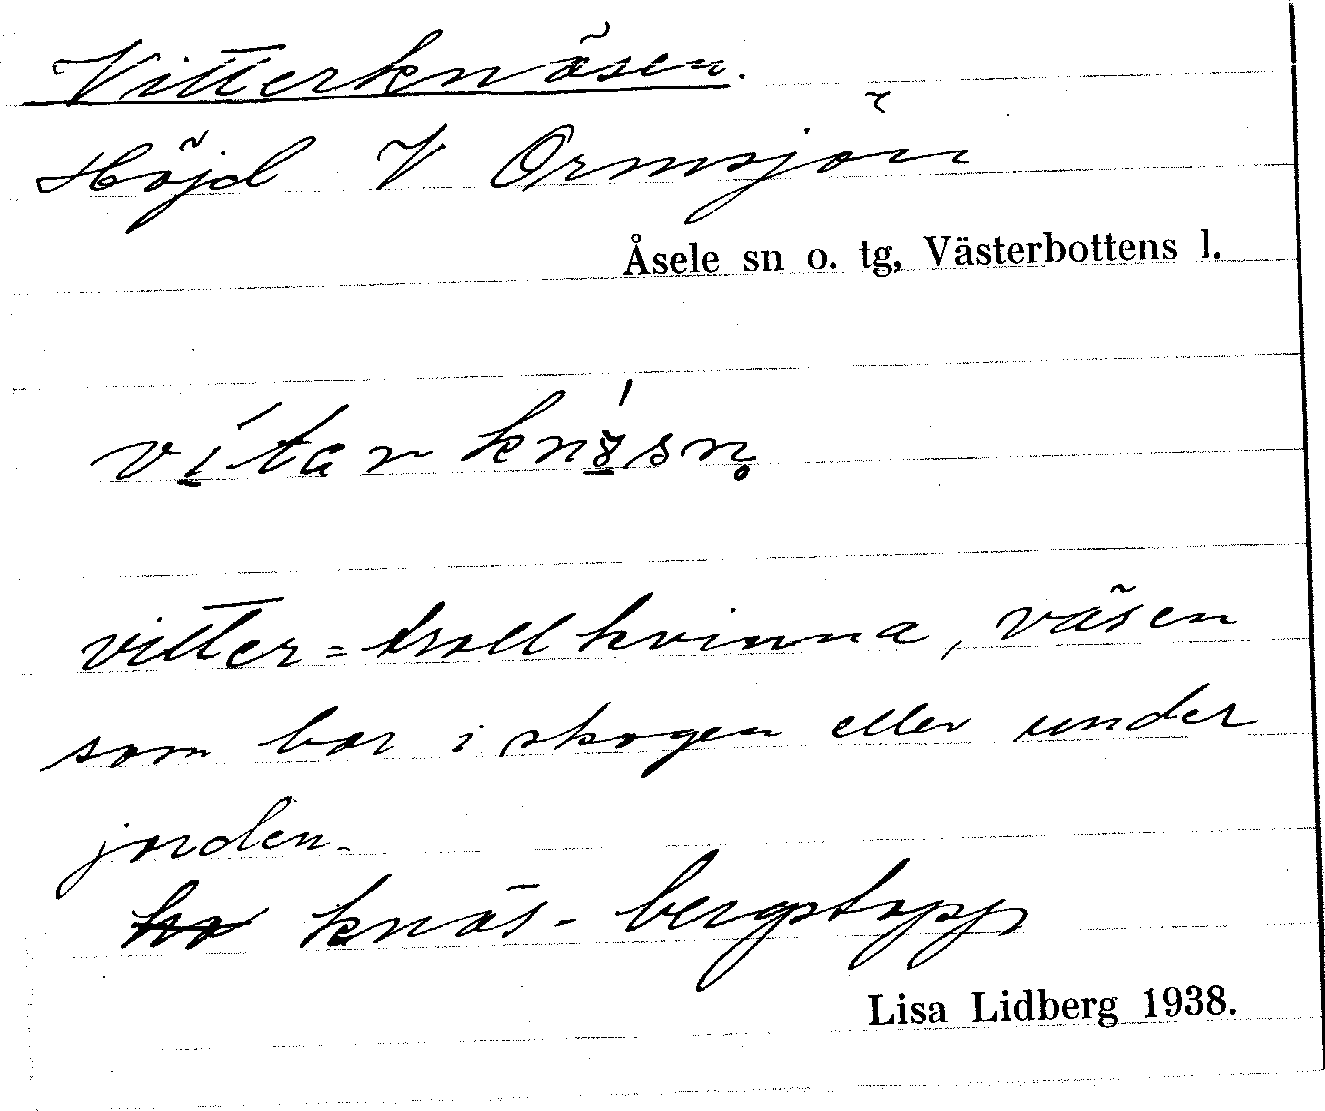 Vitterknösen.
Höjd V Ormsjön
Åsele sn o. tg, Västerbottens l.
vítar knǿsn̥
vitter = trollkvinna, väsen
som bor i skogen eller under
jorden.
knös - bergstopp
Lisa Lidberg 1938.